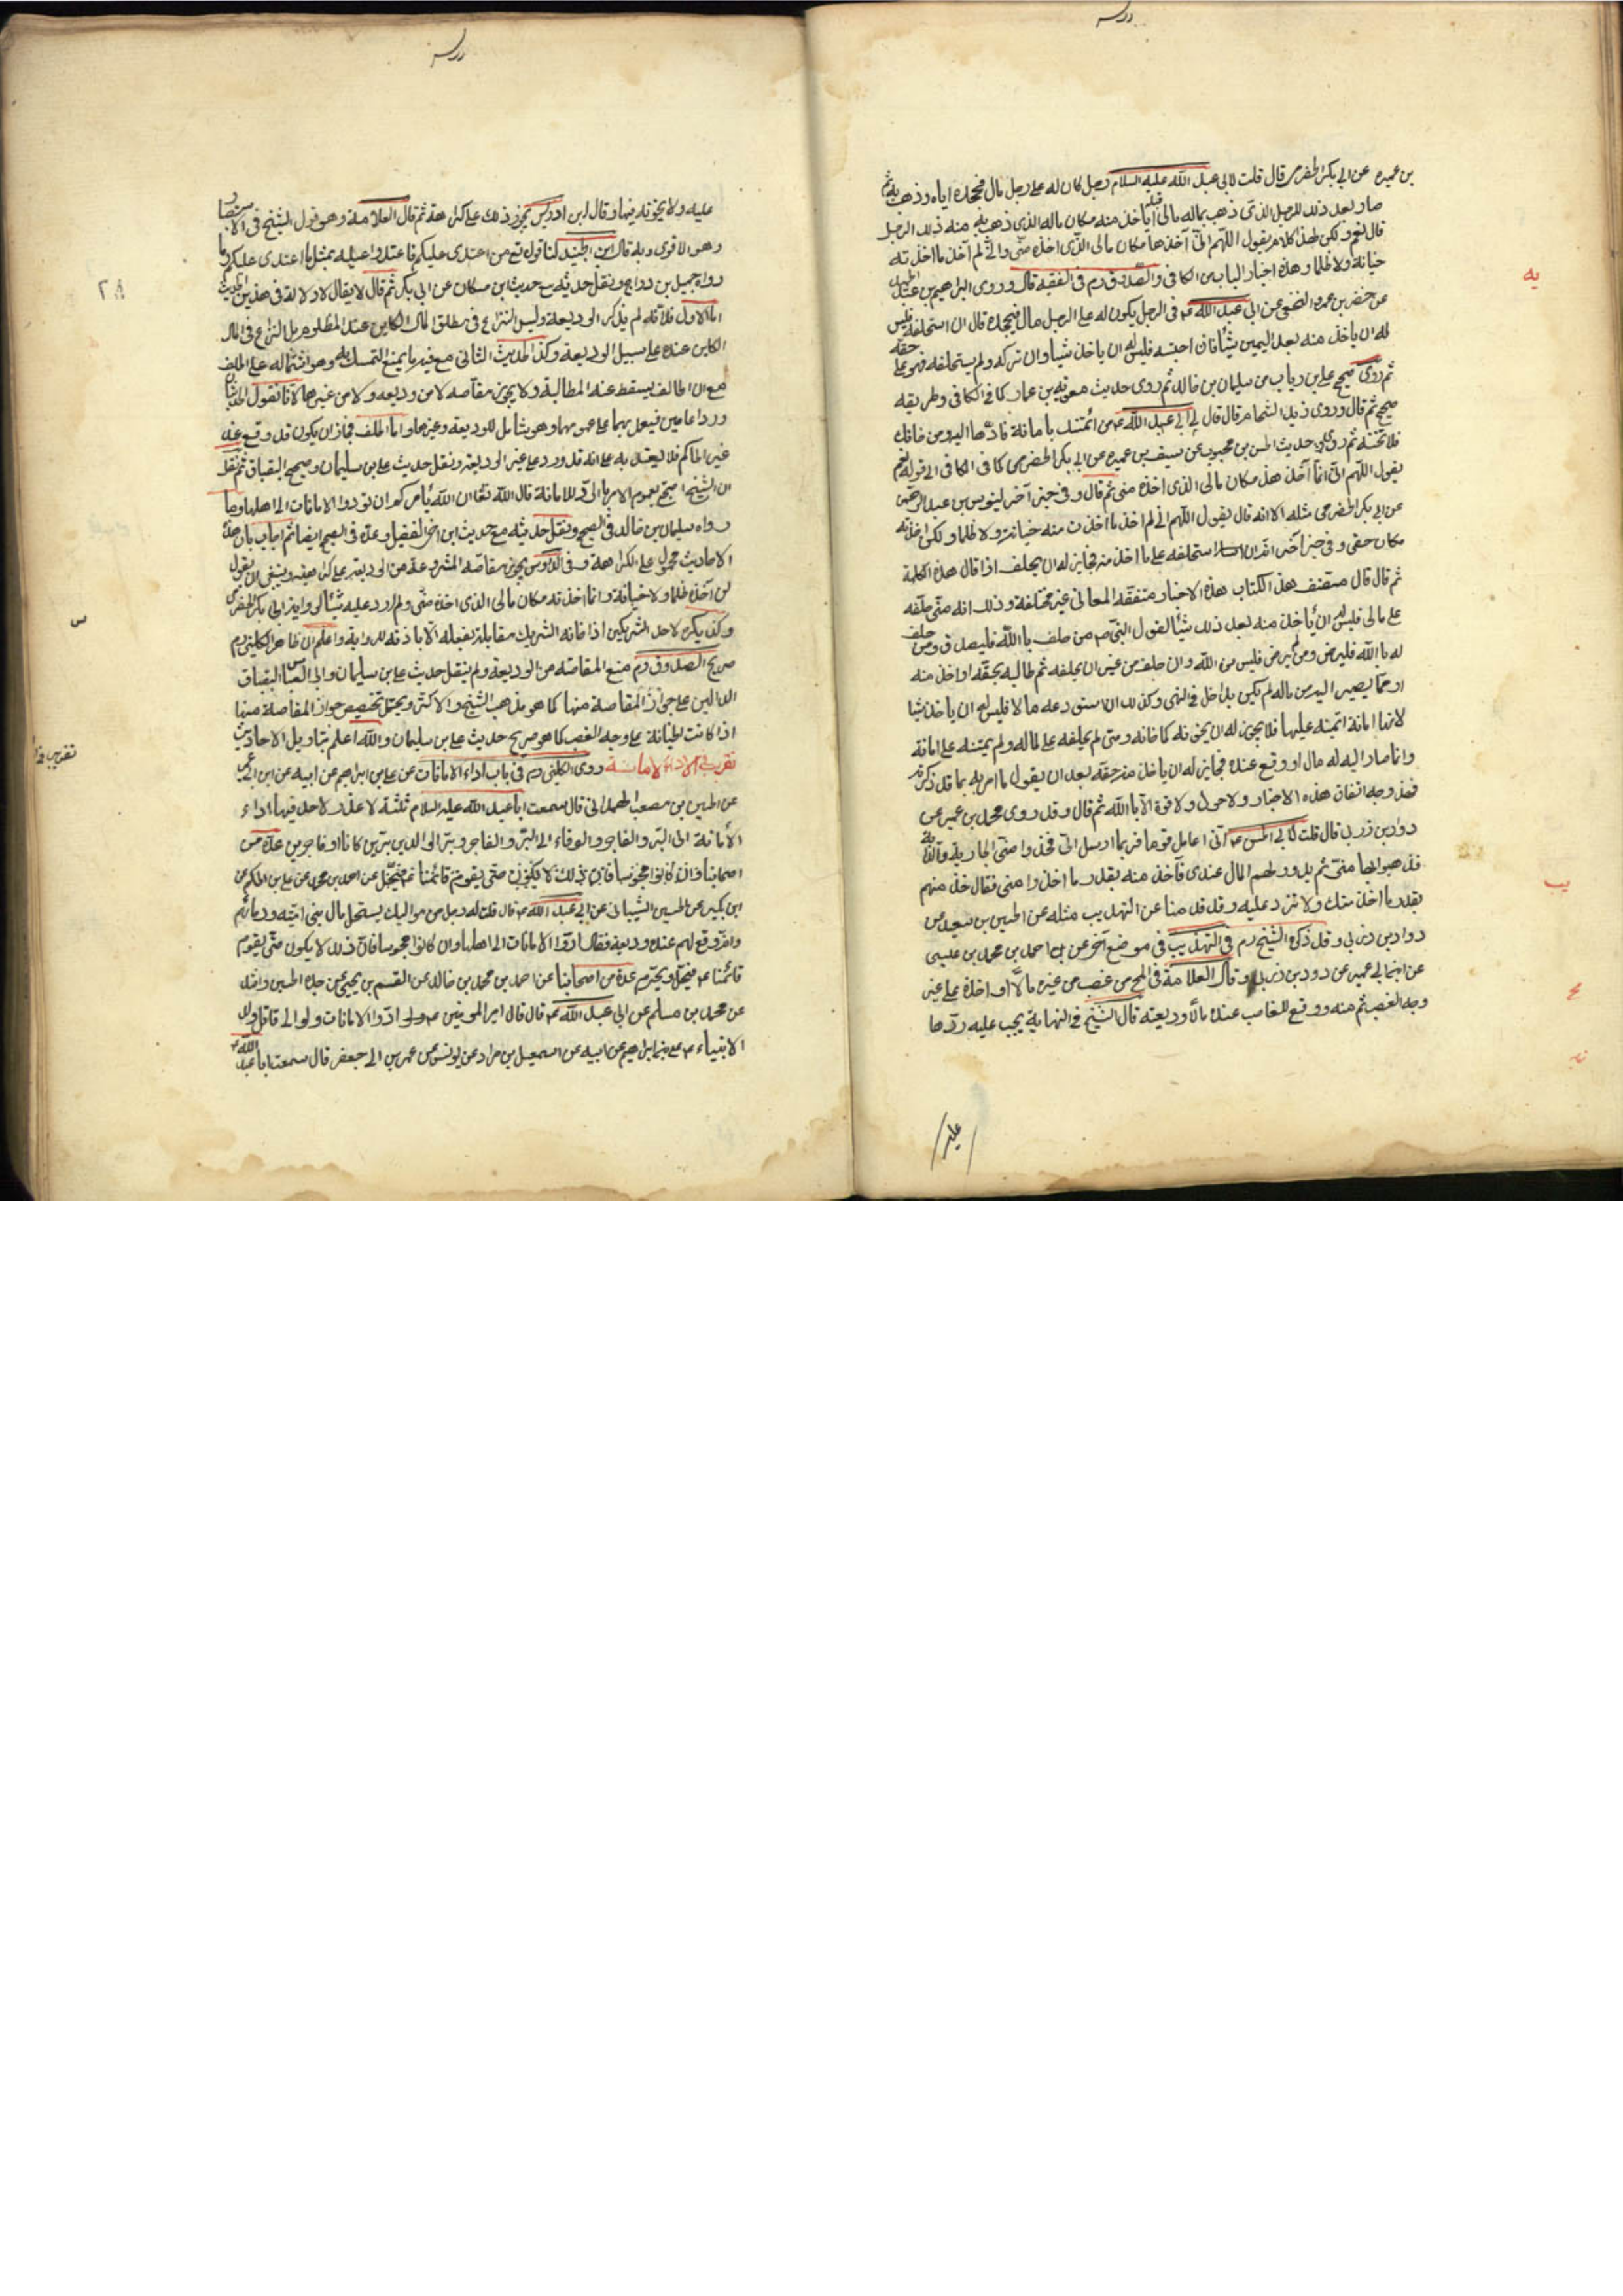 بن عميره عن ابي بكر الحضرمي قال قلت لابي عبد الله عليه السلام رجل كان له على رجل مال فجحده اياه وذهب به ثم
صار بعد ذلك للرجل الذي ذهب بماله مال قبله أيأخذ منه مكان ماله الذي ذهب به منه ذلك الرجل
قال نعم ولكن لهذا كلام يقول اللهم اني آخذ هذا مكان مالي الذي اخذه مني واني لم آخذ ما اخذته
خيانة ولا ظلما وهذه اخبار الباب من الكافي والصدوق رم في الفقيه قال وروى ابراهيم بن عبد الحميد
عن خضر بن عمرو النخعي عن ابي عبد الله ع في الرجل يكون له على الرجل مال فيجحده قال ان استحلفه فليس
له ان يأخذ منه بعد اليمين شيئا فان احتسبه فليس له ان ياخذ شيا وان تركه ولم يستحلفه فهو على حقه
ثم روى صحيح علي بن رياب من سليمان بن خالد ثم روى حديث معويه بن عمار كما في الكافي وطريقه
صحيح ثم قال وروى زيد الشحام قال قال لي ابي عبد الله ع من ائتمنك بأمانة فادها اليه ومن خانك
فلا تخنه ثم روى حديث الحسن بن محبوب عن سيف بن عميره عن ابي بكر الحضرمي كما في الكافي الى قوله نعم
يقول اللهم اني انما آخذ هذا مكان مالي الذي اخذه مني ثم قال وفي خبر آخر ليونس بن عبد الرحمن
عن ابي بكر الحضرمي مثله الا انه قال يقول اللهم اني لم اخذ ما اخذت منه خيانة ولا ظلما ولكن اخذته
مكان حقي وفي خبر آخر ان استحلفه على ما اخذ منه فجايز له ان يحلف اذا قال هذه الكلمة
ثم قال قال مصنف هذا الكتاب هذه الاخبار متفقه المعاني غير مختلفة وذلك انه متى حلفه
على مالي فليس له ان يأخذ منه بعد ذلك شيئا لقول النبي ص من حلف بالله فليصدق ومن حلف
له بالله فليرض ومن لم يرض فليس من الله وان حلف من غير ان يحلفه ثم طالبه بحقه او اخذ منه
او مما يصير اليه من ماله لم يكن بداخل في النهي وكذلك ان استودعه مالا فليس له ان ياخذ شيا
لانها امانة ائتمنه عليها فلا يجوز له ان يخونه كما خانه ومتى لم يحلفه على ماله ولم يئتمنه على امانة
وانما صار اليه له مال او وقع عنده فجايز له ان ياخذ منه حقه بعد ان يقول ما امر به بما قد ذكرته
فهذا وجه اتفاق هذه الاخبار ولا حول ولا قوة الا بالله ثم قال وقد روى محمد بن عمير عن
دواد بن زربي قال قلت لابي الحسن ع اني اعامل قوما فربما ارسل الي فخذوا مني الجارية والدابة
فذهبوا بها مني ثم يدور لهم المال عندي فآخذ منه بقدر ما اخذوا مني فقال خذ منهم
بقدر ما اخذ منك ولا تزد عليه وقد قدمنا عن التهذيب مثله عن الحسين بن سعيد عن
دواد بن زربي وقد ذكره الشيخ رم في التهذيب في موضع آخر عن احمد بن محمد بن عيسى
عن ابن ابي عمير عن دود بن زربي وقال العلامة في المخ من غصب من غيره مالا او اخذه على غير
وجه الغصب ثم منه ووقع للغاصب عنده مالا وديعته قال الشيخ في النهاية يجب عليه ردها
عليه
عليه ولا يخونه فيها وقال ابن ادريس يجوز ذلك على كراهة ثم قال العلامة وهو قول الشيخ في الاستبصار
وهو الاقوى وبه قال ابن الجنيد لنا قوله تع من اعتدى عليكم فاعتدوا عليه بمثل ما اعتدى عليكم وما
رواه جميل بن دراج ونقل حديثه مع حديث ابن مسكان عن ابي بكر ثم قال لا يقال لا دلالة في هذين الحديث
اما الاول فلانه لم يذكر الوديعة وليس النزاع في مطلق المال الكاين عند المظلوم بل النزاع في المال
الكاين عنده على سبيل الوديعة وكذا الحديث الثاني مع فيه ما يمنع التمسك به وهو اشتماله على الحلف
مع ان الحالف يسقط عنه المطالبة ولا يجوز مقاصه لا من وديعه ولا من غيرها لانا نقول الحديثان
وردا عامين فيعمل بهما على عمومهما وهو شامل للوديعة وغيرها واما الحلف فجاز ان يكون قد وقع عند
غير الحاكم فلا يعتد به على انه قد ورد على غير الوديعة ونقل حديث علي بن سليمان وصحيح البقباق ثم نقل
ان الشيخ احتج بعموم الامر بالرد للامانة قال الله تعا ان الله يأمركم ان تؤدوا الامانات الى اهلها وما
رواه سليمان بن خالد في الصحيح ونقل حديثه مع حديث ابن اخي الفضيل وعده في الصحيح ايضا ثم اجاب بان هذه
الاحاديث محمول على الكراهة وفي الدروس يجوز مقاصه المشروعة من الوديعة على كراهية وينبغي ان يقول
لن آخذه ظلما ولا خيانة وانما اخذته مكان مالي الذي اخذه مني ولم ازدد عليه شيئا لرواية ابي بكر الحضرمي
وكذا يكره لاحد الشريكين اذا خانه الشريك مقابلته بفعله الا باذنه للرواية واعلم ان ظاهر الكليني رم
صريح الصدوق رم منع المقاصه من الوديعة ولم ينقل حديث علي بن سليمان وابي العباس البقباق
الدالين على جواز المقاصة منها كما هو مذهب الشيخ والاكثر ويحتمل تخصيص جواز المقاصة منها
اذا كانت الخيانة على وجه الغصب كما هو صريح حديث علي بن سليمان والله اعلم بتاويل الاحاديث
تقريب في الاداء الامانة روى الكليني رم في باب اداء الامانات عن علي بن ابراهيم عن ابيه عن ابن ابي عمير
عن الحسين بن مصعب الهمداني قال سمعت ابا عبد الله عليه السلام ثلثة لا عذر لاحد فيها اداء
الامانة الى البر والفاجر والوفاء الى البر والفاجر وبر الوالدين برين كانا او فاجرين عدة من
اصحابنا
ابن بكير عن الحسين الشيباني عن ابي عبد الله ع قال قلت له رجل من مواليك يستحل مال بني امية ودماءهم
وانه وقع لهم عنده وديعة فقال ادوا الامانات الى اهلها وان كانوا مجوسا فان ذلك لا يكون حتى يقوم
قائمنا ع فيحل ويحرم عدة من اصحابنا عن احمد بن محمد بن خالد عن القسم بن يحيى عن جده الحسن بن راشد
عن محمد بن مسلم عن ابي عبد الله ع قال قال امير المومنين ع ادوا الامانات ولو الى قاتل ولد
الانبياء ع علي بن ابراهيم عن ابيه عن اسمعيل بن مراد عن يونس عن عمر بن ابي جعفر قال سمعت ابا عبد الله ع